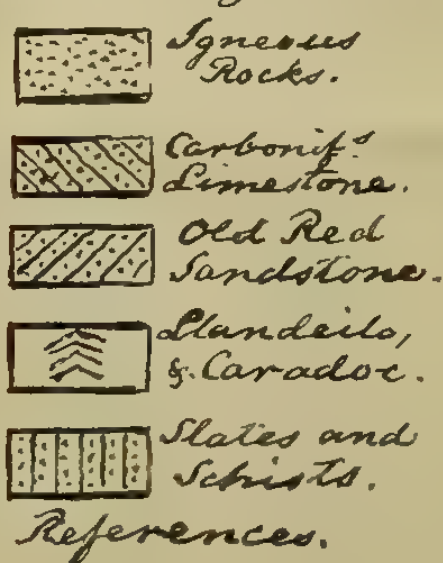 Igneous
Rocks.
Carbonif.s
Limestone.
Old Red
Sandstone.
Llandeilo,
& Caradoc.
Slates and
Schists.
References.